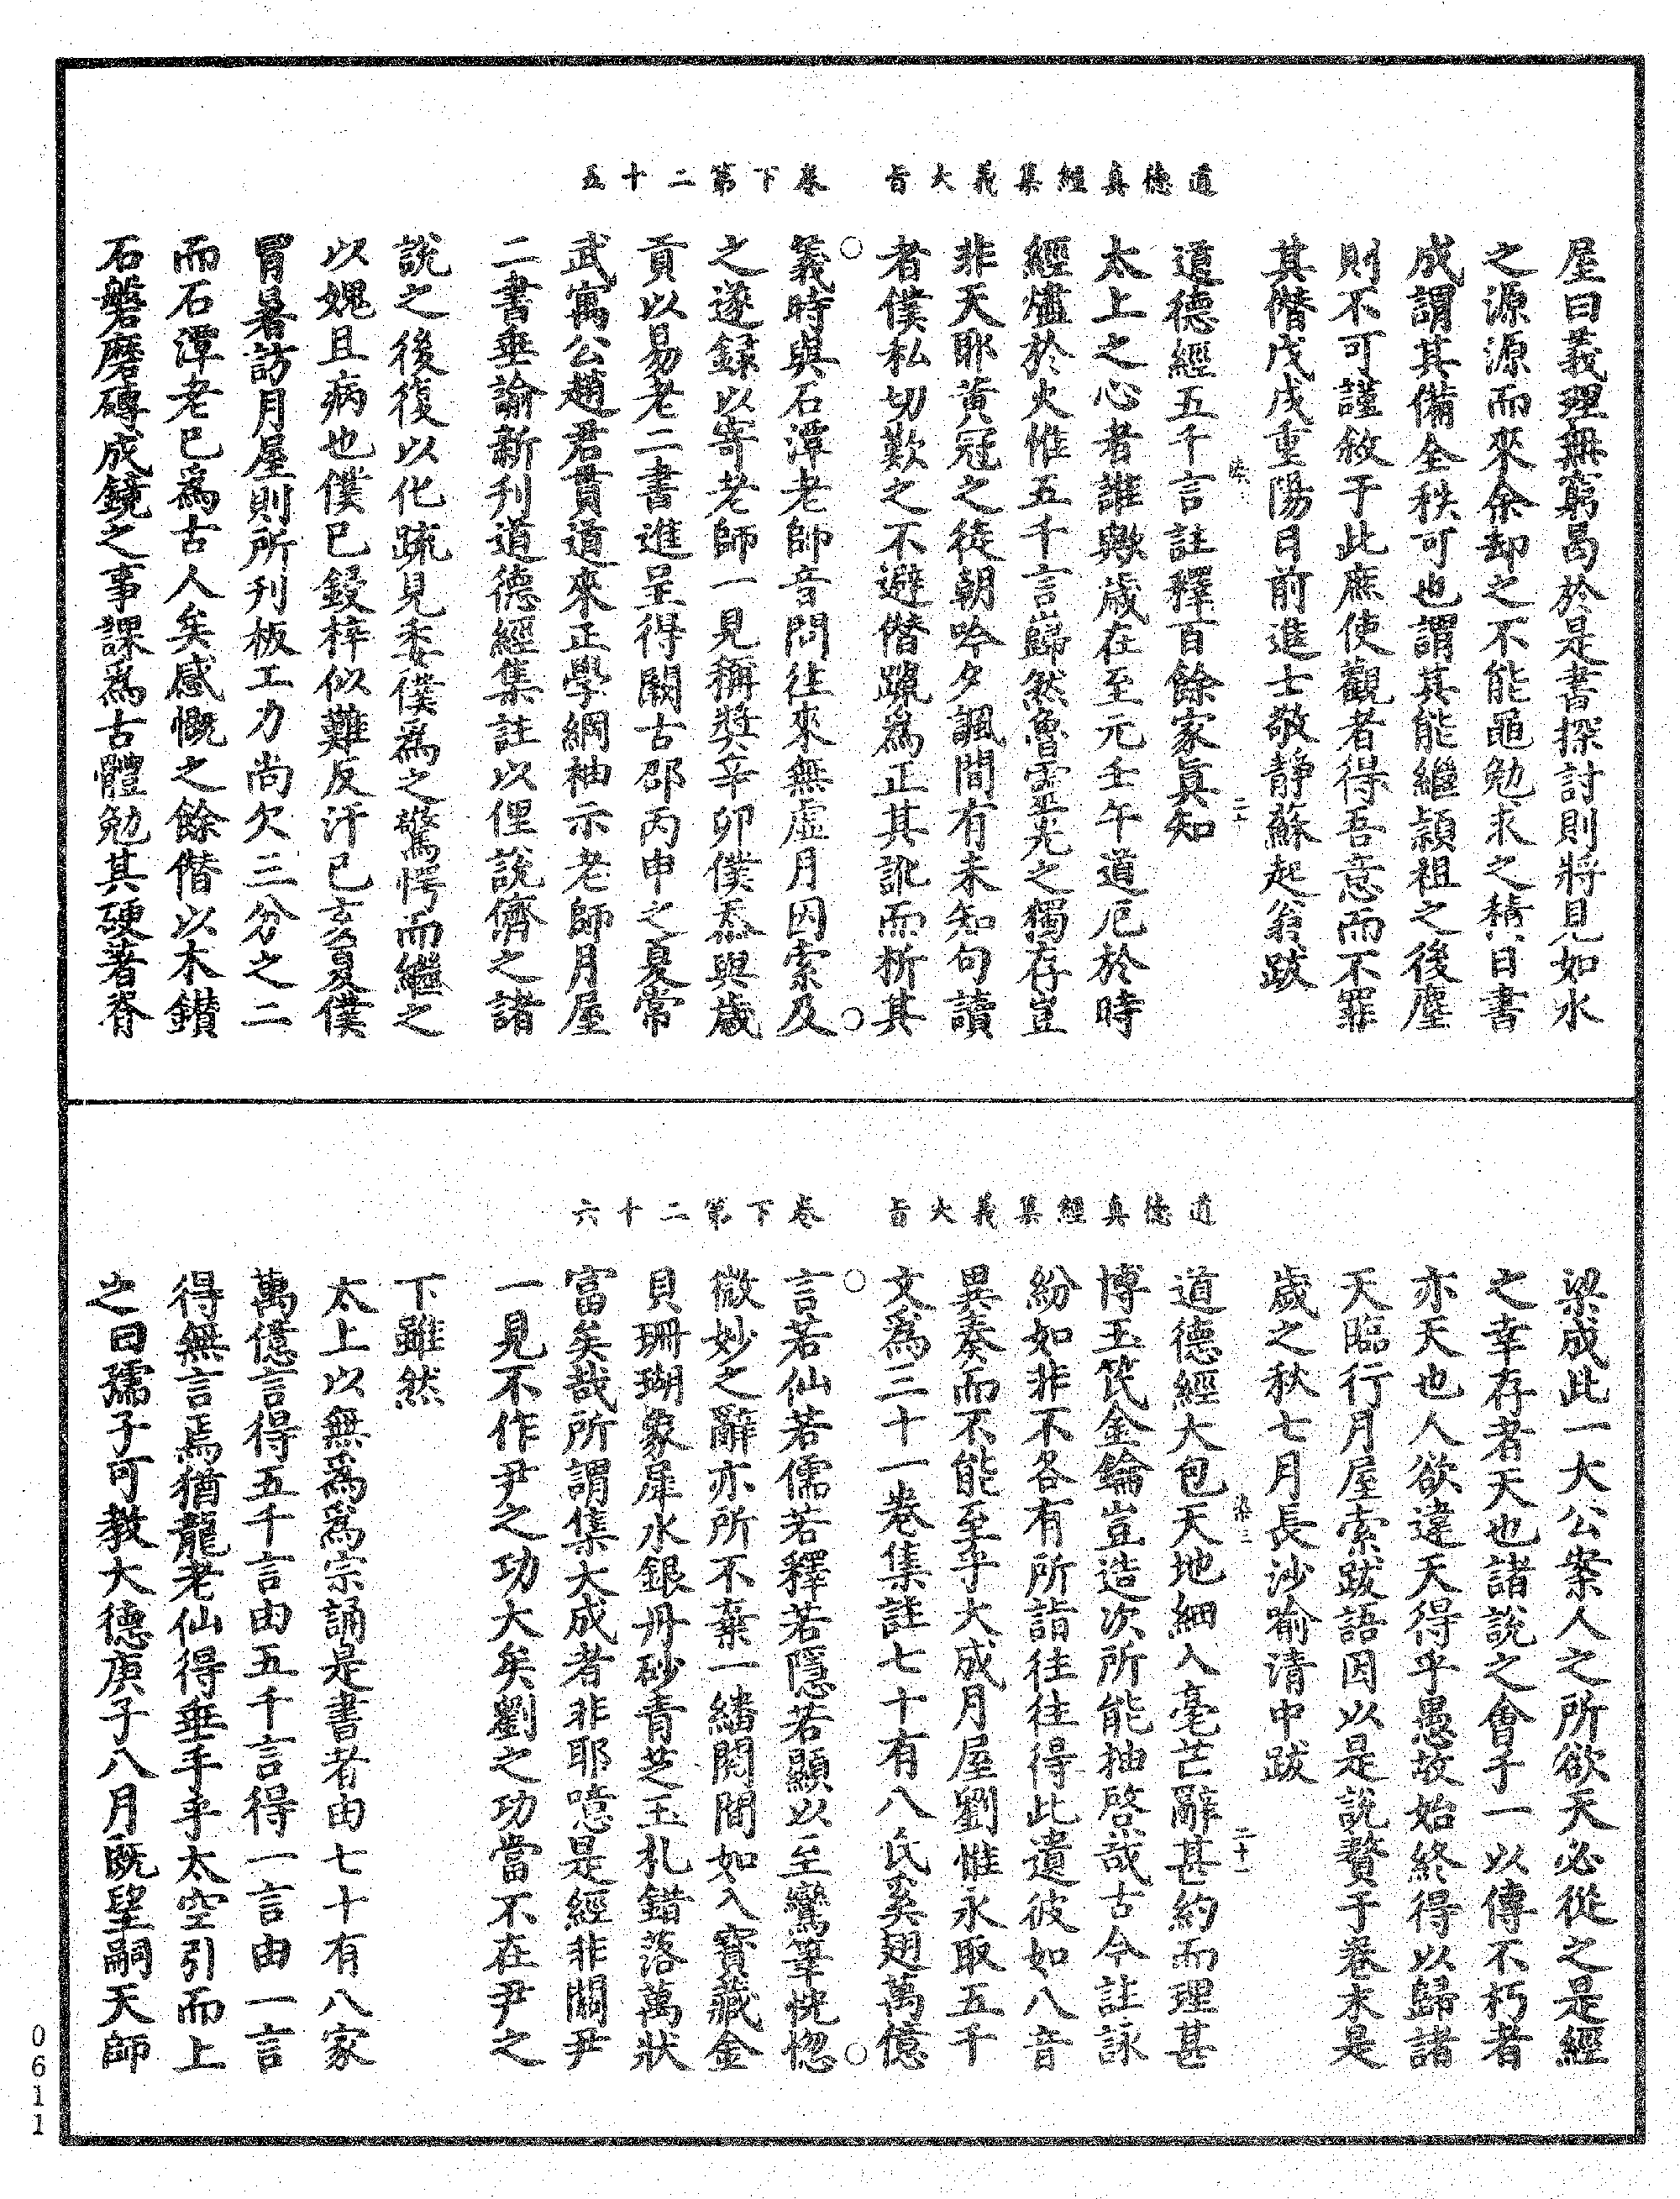 道德真經集義大旨　卷下第二十五
屋曰義理無窮曷於是書探討則將見如水
之源源而來余却之不能黽勉求之積日書
成謂其備全秩可也謂其能繼潁祖之後塵
則不可謹敘于此庶使觀者得吾意而不罪
其僭戊戌重陽日前進士敬靜蘇起翁跋
道德經五千言註釋百餘家真知
太上之心者誰歟歲在至元壬午道厄於時
經燼於火惟五千言歸然魯靈光之獨存豈
非天耶黃冠之徒朝吟夕諷間有未知句讀
者僕私切歎之不避僭躐為正其訛而析其
義時與石潭老師音問往來無虛月因索及
之遂録以寄老師一見稱獎辛卯僕忝與歲
貢以易老二書進呈得闕古邵丙申之夏常
武寓公趙君貫道來正學綱柚示老師月屋
二書垂諭新刊道德經集註以俚說儕之諸
說之後復以化疏見委僕為之驚愕而繼之
以媿且病也僕已鋟梓似難反汗已亥夏僕
冒暑訪月屋則所刊板工力尚欠三分之二
而石潭老已為古人矣感慨之餘僭以木鑚
石磐磨磚成鏡之事課為古體勉其硬著脊
道德真經集義大旨　卷下第二十六
梁成此一大公案人之所欲天必從之是經
之幸存者天也諸說之會于一以傳不朽者
亦天也人欲違天得乎愚故始終得以歸諸
天臨行月屋索跋語因以是說贅于卷末是
歲之秋七月長沙喻清中跋
道德經大包天地細入毫芒辭甚約而理甚
博玉笢金鑰豈造次所能抽啓哉古今註詠
紛如非不各有所詣往往得此遺彼如八音
異奏而不能至乎大成月屋劉惟永取五千
文為三十一卷集註七十有八氏奚翅萬億
言若仙若儒若釋若隱若顯以至鸞筆恍惚
微妙之辭亦所不棄一繙閱間如入寶藏金
貝珊瑚象犀水銀丹砂青芝玉札錯落萬狀
富矣哉所謂集大成者非耶噫是經非關尹
一見不作尹之功大矣劉之功當不在尹之
下雖然
太上以無為為宗誦是書者由七十有八家
萬億言得五千言由五千言得一言由一言
得無言焉猶龍老仙得垂手乎太空引而上
之曰孺子可教大德庚子八月既望嗣天師
0611